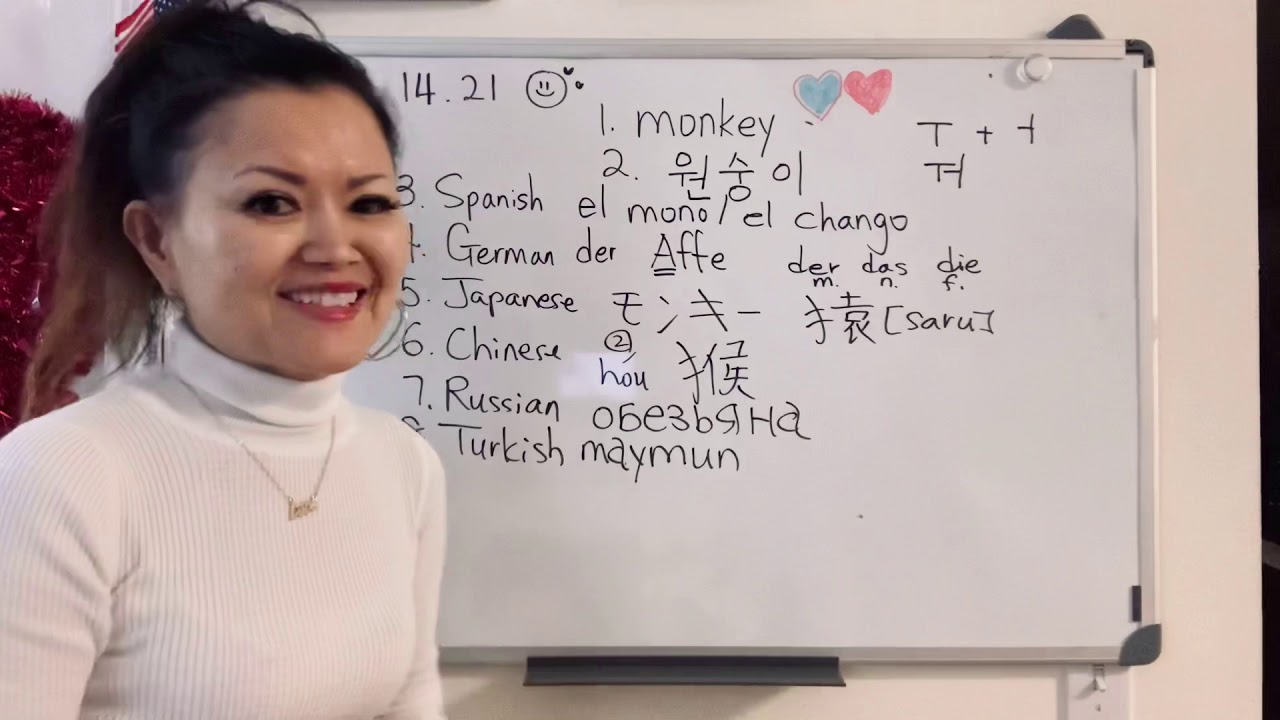 14.21
1. monkey
ㅜ + ㅓ
2. 원숭이
ㅝ
3. Spanish el mono / el chango
4. German der Affe der das die
m. n. f.
5. Japanese モンキー 猿 [saru]
6. Chinese ② hóu 猴
7. Russian обезьяна
8. Turkish maymun